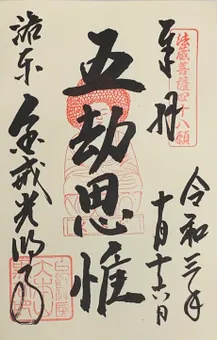 奉拝
法蔵菩薩四十八願
令和三年
十月十六日
五劫思惟
洛東
金戒光明寺